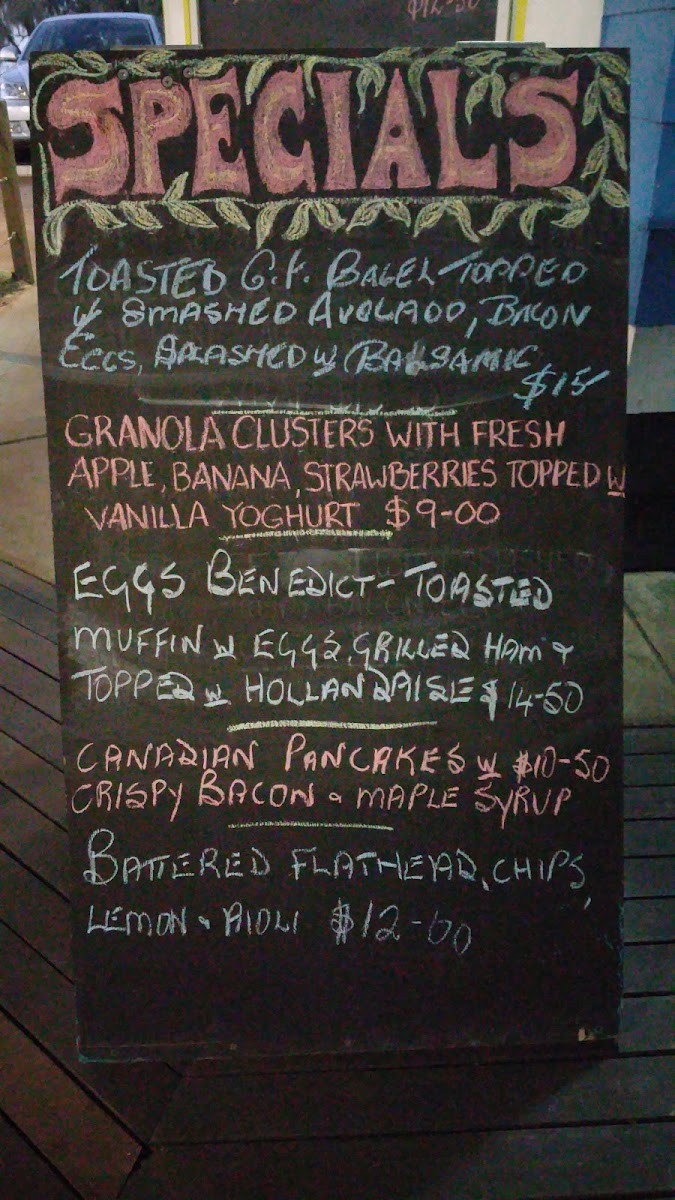 $12-50
SPECIALS
TOASTED G.F. BAGEL TOPPED
w SMASHED AVOCADO, BACON
EGGS, SPLASHED w BALSAMIC
$15
GRANOLA CLUSTERS WITH FRESH
APPLE, BANANA, STRAWBERRIES TOPPED w
VANILLA YOGHURT $9-00
EGGS BENEDICT - TOASTED
MUFFIN w EGGS, GRILLED HAM &
TOPPED w HOLLANDAISE $14-50
CANADIAN PANCAKES w $10-50
CRISPY BACON & MAPLE SYRUP
BATTERED FLATHEAD, CHIPS,
LEMON & AIOLI $12-00